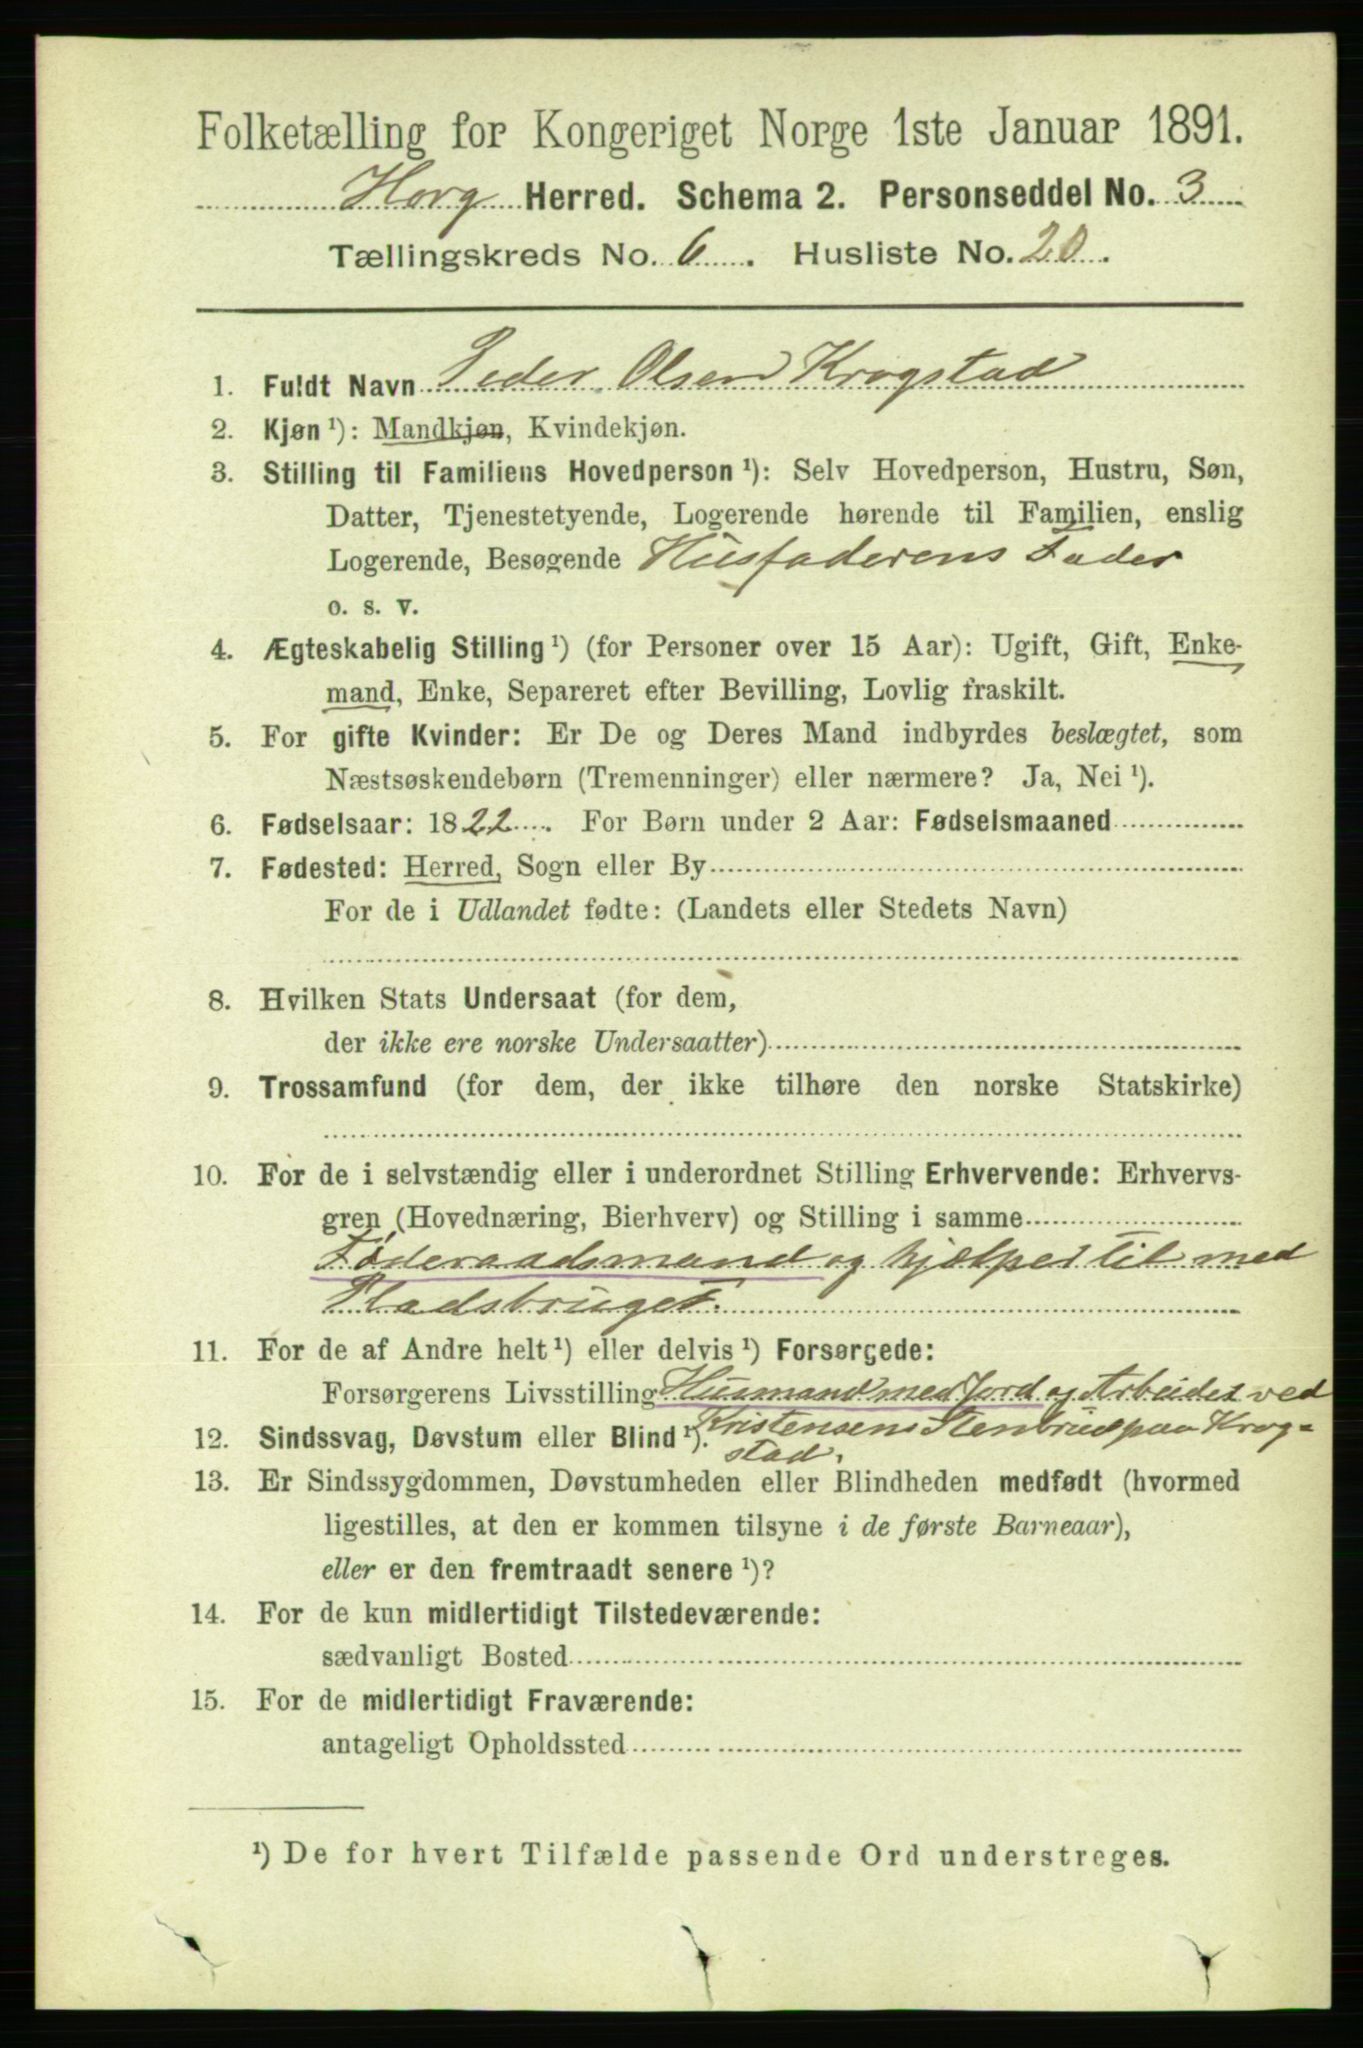 Folketælling for Kongeriget Norge 1ste Januar 1891.
Horg Herred. Schema 2. Personseddel No. 3
Tællingskreds No. 6. Husliste No. 20.
1. Fuldt Navn Peder Olsen Krogstad
2. Kjøn ¹): Mandkjøn, Kvindekjøn.
3. Stilling til Familiens Hovedperson ¹): Selv Hovedperson, Hustru, Søn,
Datter, Tjenestetyende, Logerende hørende til Familien, enslig
Logerende, Besøgende Husfaderens Fader
o. s. v.
4. Ægteskabelig Stilling ¹) (for Personer over 15 Aar): Ugift, Gift, Enke-
mand, Enke, Separeret efter Bevilling, Lovlig fraskilt.
5. For gifte Kvinder: Er De og Deres Mand indbyrdes beslægtet, som
Næstsøskendebørn (Tremenninger) eller nærmere? Ja, Nei ¹).
6. Fødselsaar: 1822. For Børn under 2 Aar: Fødselsmaaned
7. Fødested: Herred, Sogn eller By
For de i Udlandet fødte: (Landets eller Stedets Navn)
8. Hvilken Stats Undersaat (for dem,
der ikke ere norske Undersaatter)
9. Trossamfund (for dem, der ikke tilhøre den norske Statskirke)
10. For de i selvstændig eller i underordnet Stilling Erhvervende: Erhvervs-
gren (Hovednæring, Bierhverv) og Stilling i samme
Føderaadsmand og hjælper til med
Pladsbruget.
11. For de af Andre helt ¹) eller delvis ¹) Forsørgede:
Forsørgerens Livsstilling Husmand med Jord og Arbeider ved
12. Sindssvag, Døvstum eller Blind ¹). Kristensens Stenbrud paa Krog-
stad.
13. Er Sindssygdommen, Døvstumheden eller Blindheden medfødt (hvormed
ligestilles, at den er kommen tilsyne i de første Barneaar),
eller er den fremtraadt senere ¹)?
14. For de kun midlertidigt Tilstedeværende:
sædvanligt Bosted
15. For de midlertidigt Fraværende:
antageligt Opholdssted
¹) De for hvert Tilfælde passende Ord understreges.